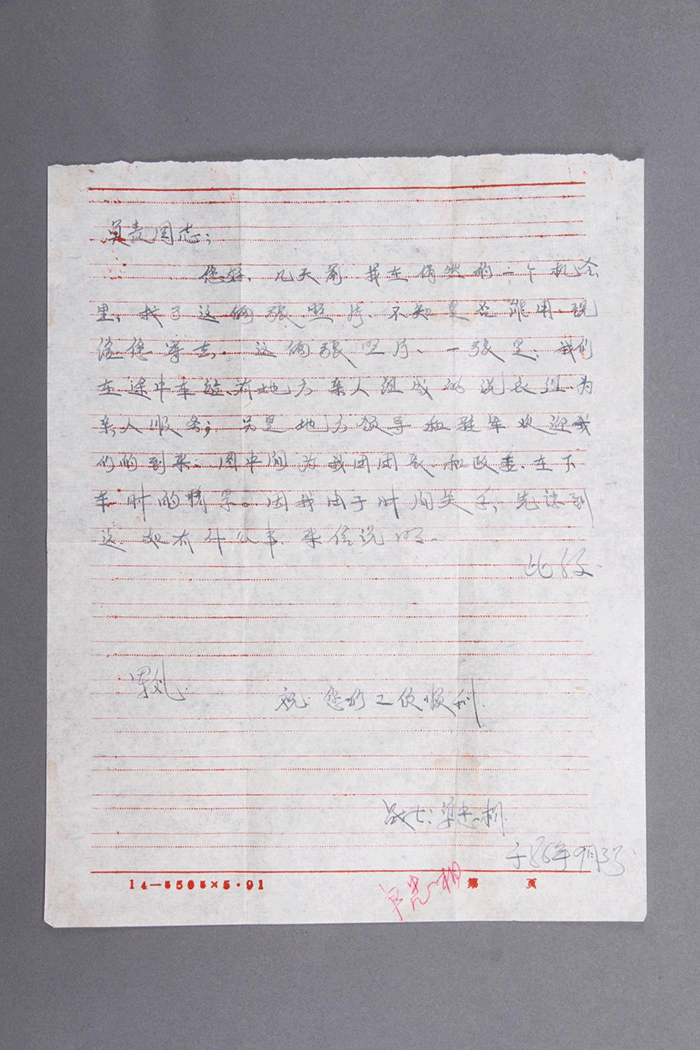 负责同志；
您好，几天前 我在偶然的一个机会
里，找了这俩张照片、不知是否能用，现
给您寄去，这俩张照片、一张是，我们
在途中车站，有地方亲人组成的 为
亲人服务；另是地方领导和驻军欢迎我
们的到来。图中间为我团团长和政委，在下
车时的情景。因我由于时间关系，先谈到
这，如有什么事，来信说明。
此致
军礼
祝：您的工作顺利
战士：
于86年9月
14—5505×5·91
第 页